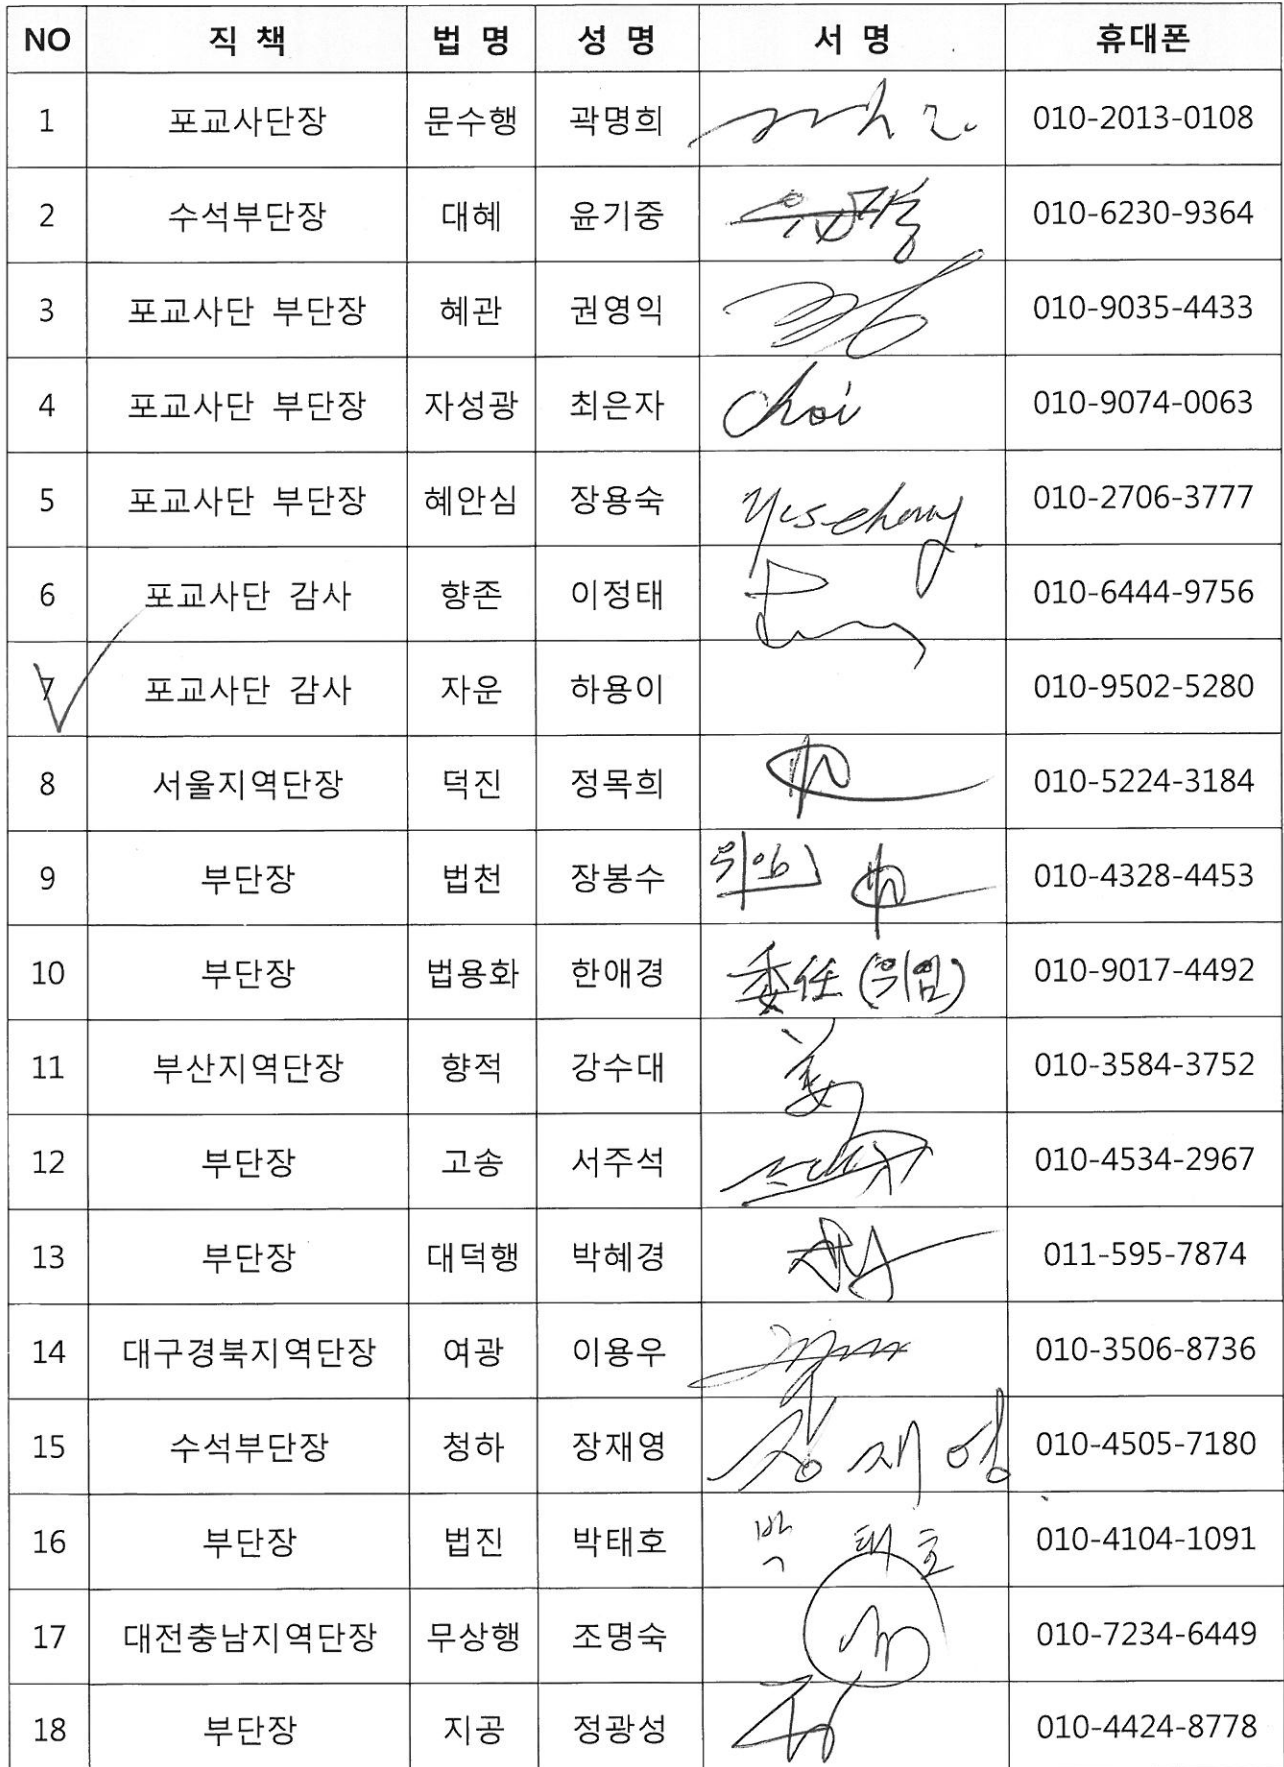 NO 직 책 법 명 성 명 서 명 휴대폰
1 포교사단장 문수행 곽명희 010-2013-0108
2 수석부단장 대혜 윤기중 010-6230-9364
3 포교사단 부단장 혜관 권영익 010-9035-4433
4 포교사단 부단장 자성광 최은자 Choi 010-9074-0063
5 포교사단 부단장 혜안심 장용숙 010-2706-3777
6 포교사단 감사 향존 이정태 010-6444-9756
7 포교사단 감사 자운 하용이 010-9502-5280
8 서울지역단장 덕진 정목희 010-5224-3184
9 부단장 법천 장봉수 위임 010-4328-4453
10 부단장 법용화 한애경 委任 (위임) 010-9017-4492
11 부산지역단장 향적 강수대 姜 010-3584-3752
12 부단장 고송 서주석 010-4534-2967
13 부단장 대덕행 박혜경 011-595-7874
14 대구경북지역단장 여광 이용우 010-3506-8736
15 수석부단장 청하 장재영 장재영 010-4505-7180
16 부단장 법진 박태호 박 태호 010-4104-1091
17 대전충남지역단장 무상행 조명숙 010-7234-6449
18 부단장 지공 정광성 010-4424-8778